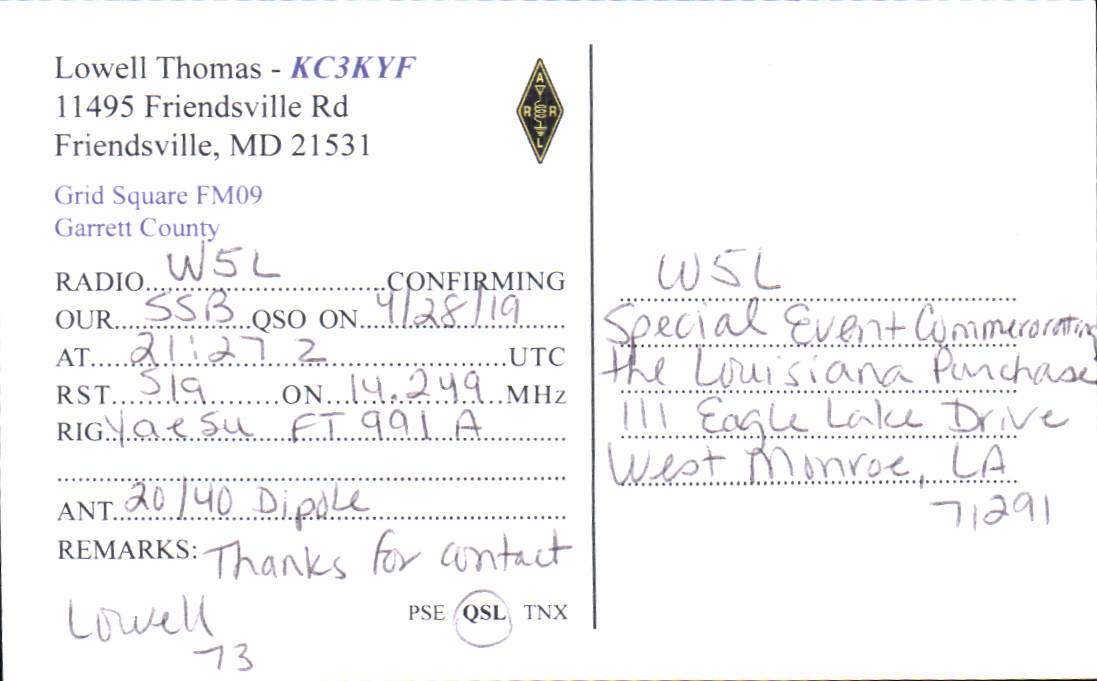 Lowell Thomas - KC3KYF
11495 Friendsville Rd
Friendsville, MD 21531
ARRL
Grid Square FM09
Garrett County
RADIO W5L CONFIRMING
OUR SSB QSO ON 4/28/19
AT 21:27 Z UTC
RST 519 ON 14.249 MHz
RIG Yaesu FT 991 A
ANT 20/40 Dipole
REMARKS: Thanks for contact
Lowell
73
PSE QSL TNX
W5L
Special Event Commerorating
the Louisiana Purchase
111 Eagle Lake Drive
West Monroe, LA
71291